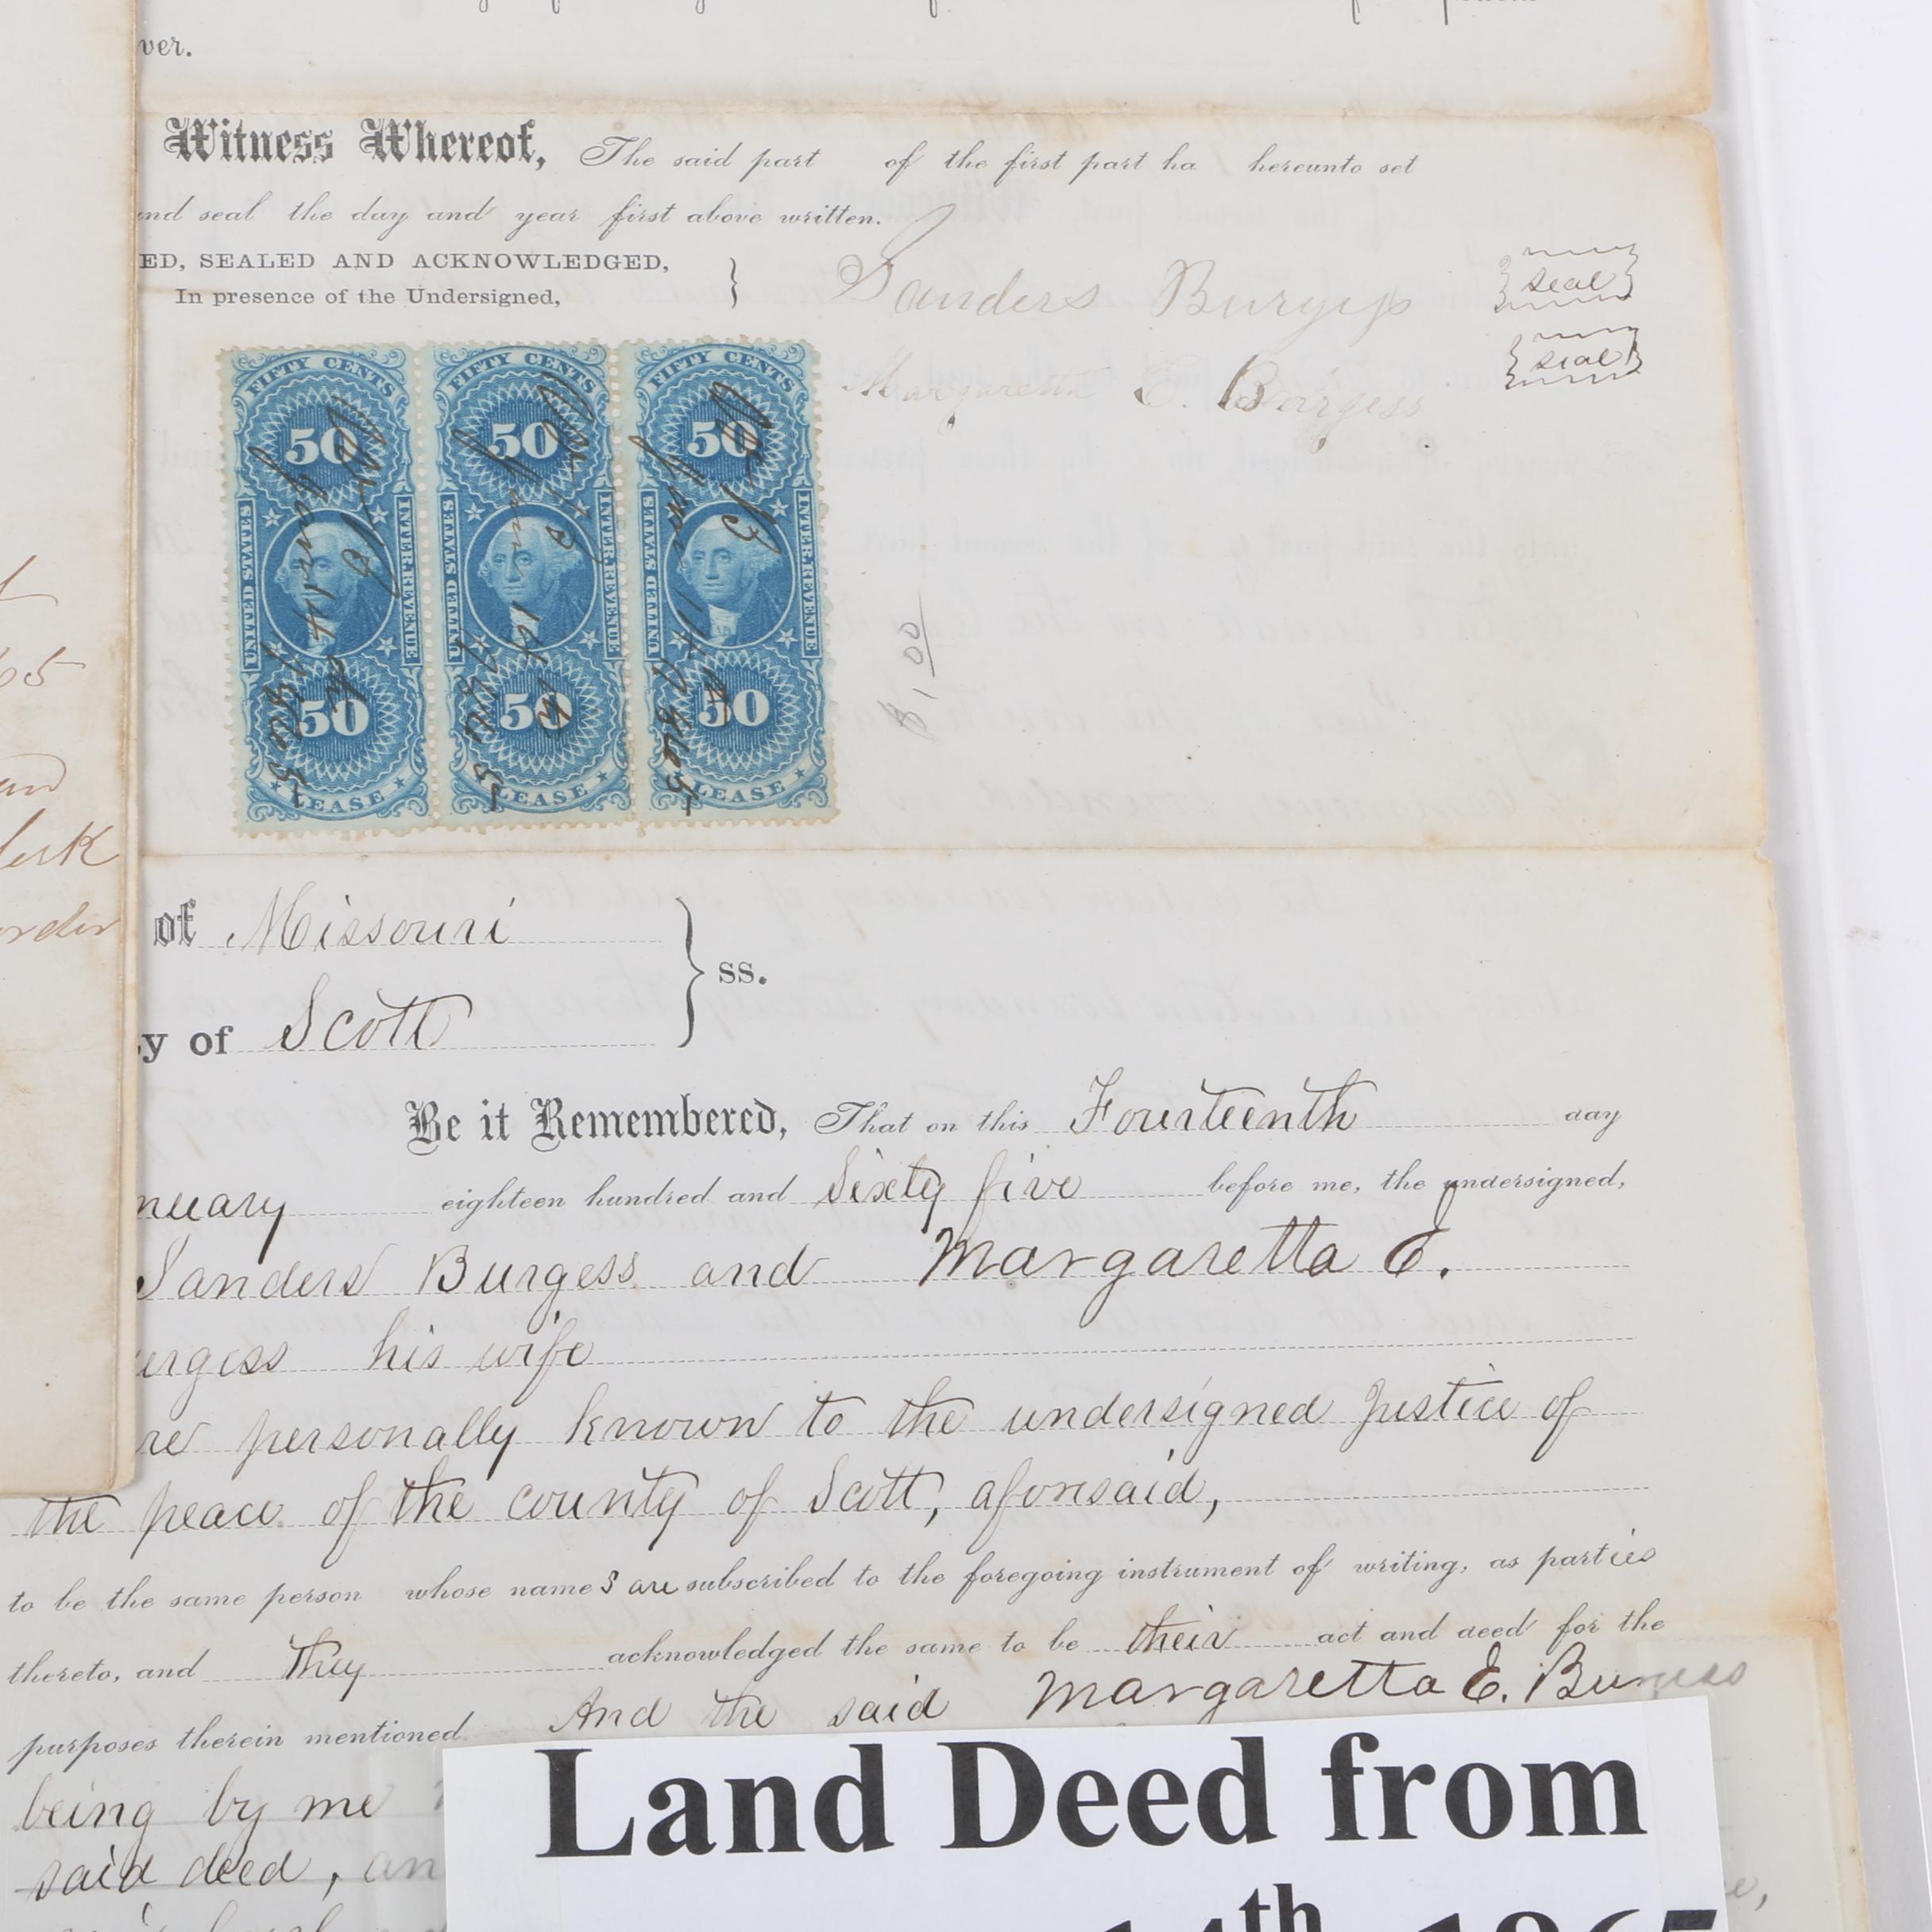 ver.
Witness Whereof, The said part of the first part ha hereunto set
and seal the day and year first above written.
ED, SEALED AND ACKNOWLEDGED,
In presence of the Undersigned,
Sanders Burgess
seal
Margaretta E. Burgess
seal
FIFTY CENTS FIFTY CENTS FIFTY CENTS
50 50 50
UNITED STATES INTER. REVENUE UNITED STATES INTER. REVENUE UNITED STATES INTER. REVENUE
50 50 50
LEASE LEASE LEASE
$1,00
65
lerk
order
of Missouri
y of Scott
ss.
Be it Remembered, That on this Fourteenth day
nuary eighteen hundred and Sixty five before me, the undersigned,
Sanders Burgess and Margaretta E.
urgess his wife
re personally known to the undersigned Justice of
the peace of the county of Scott, aforesaid,
to be the same person whose names are subscribed to the foregoing instrument of writing, as parties
thereto, and they acknowledged the same to be their act and deed for the
purposes therein mentioned. And the said Margaretta E. Burgess
being by me
said deed, an
Land Deed from
14th 1865